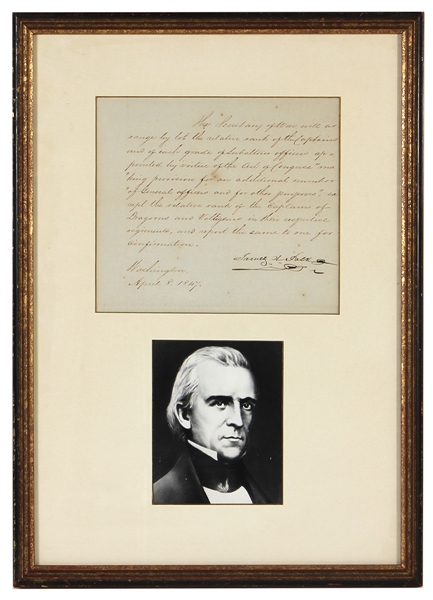 The Secretary of War will ar
range by lot the relative rank of the Captains
and of each grade of Subaltern officers ap-
pointed by virtue of the Act of Congress "ma
king provision for an additional number
"of General officers and for other purposes" ex
cept the relative rank of the Captains of
Dragoons and Voltigeurs in their respective
regiments, and report the same to me for
confirmation.
James K. Polk
Washington
April 8. 1847.